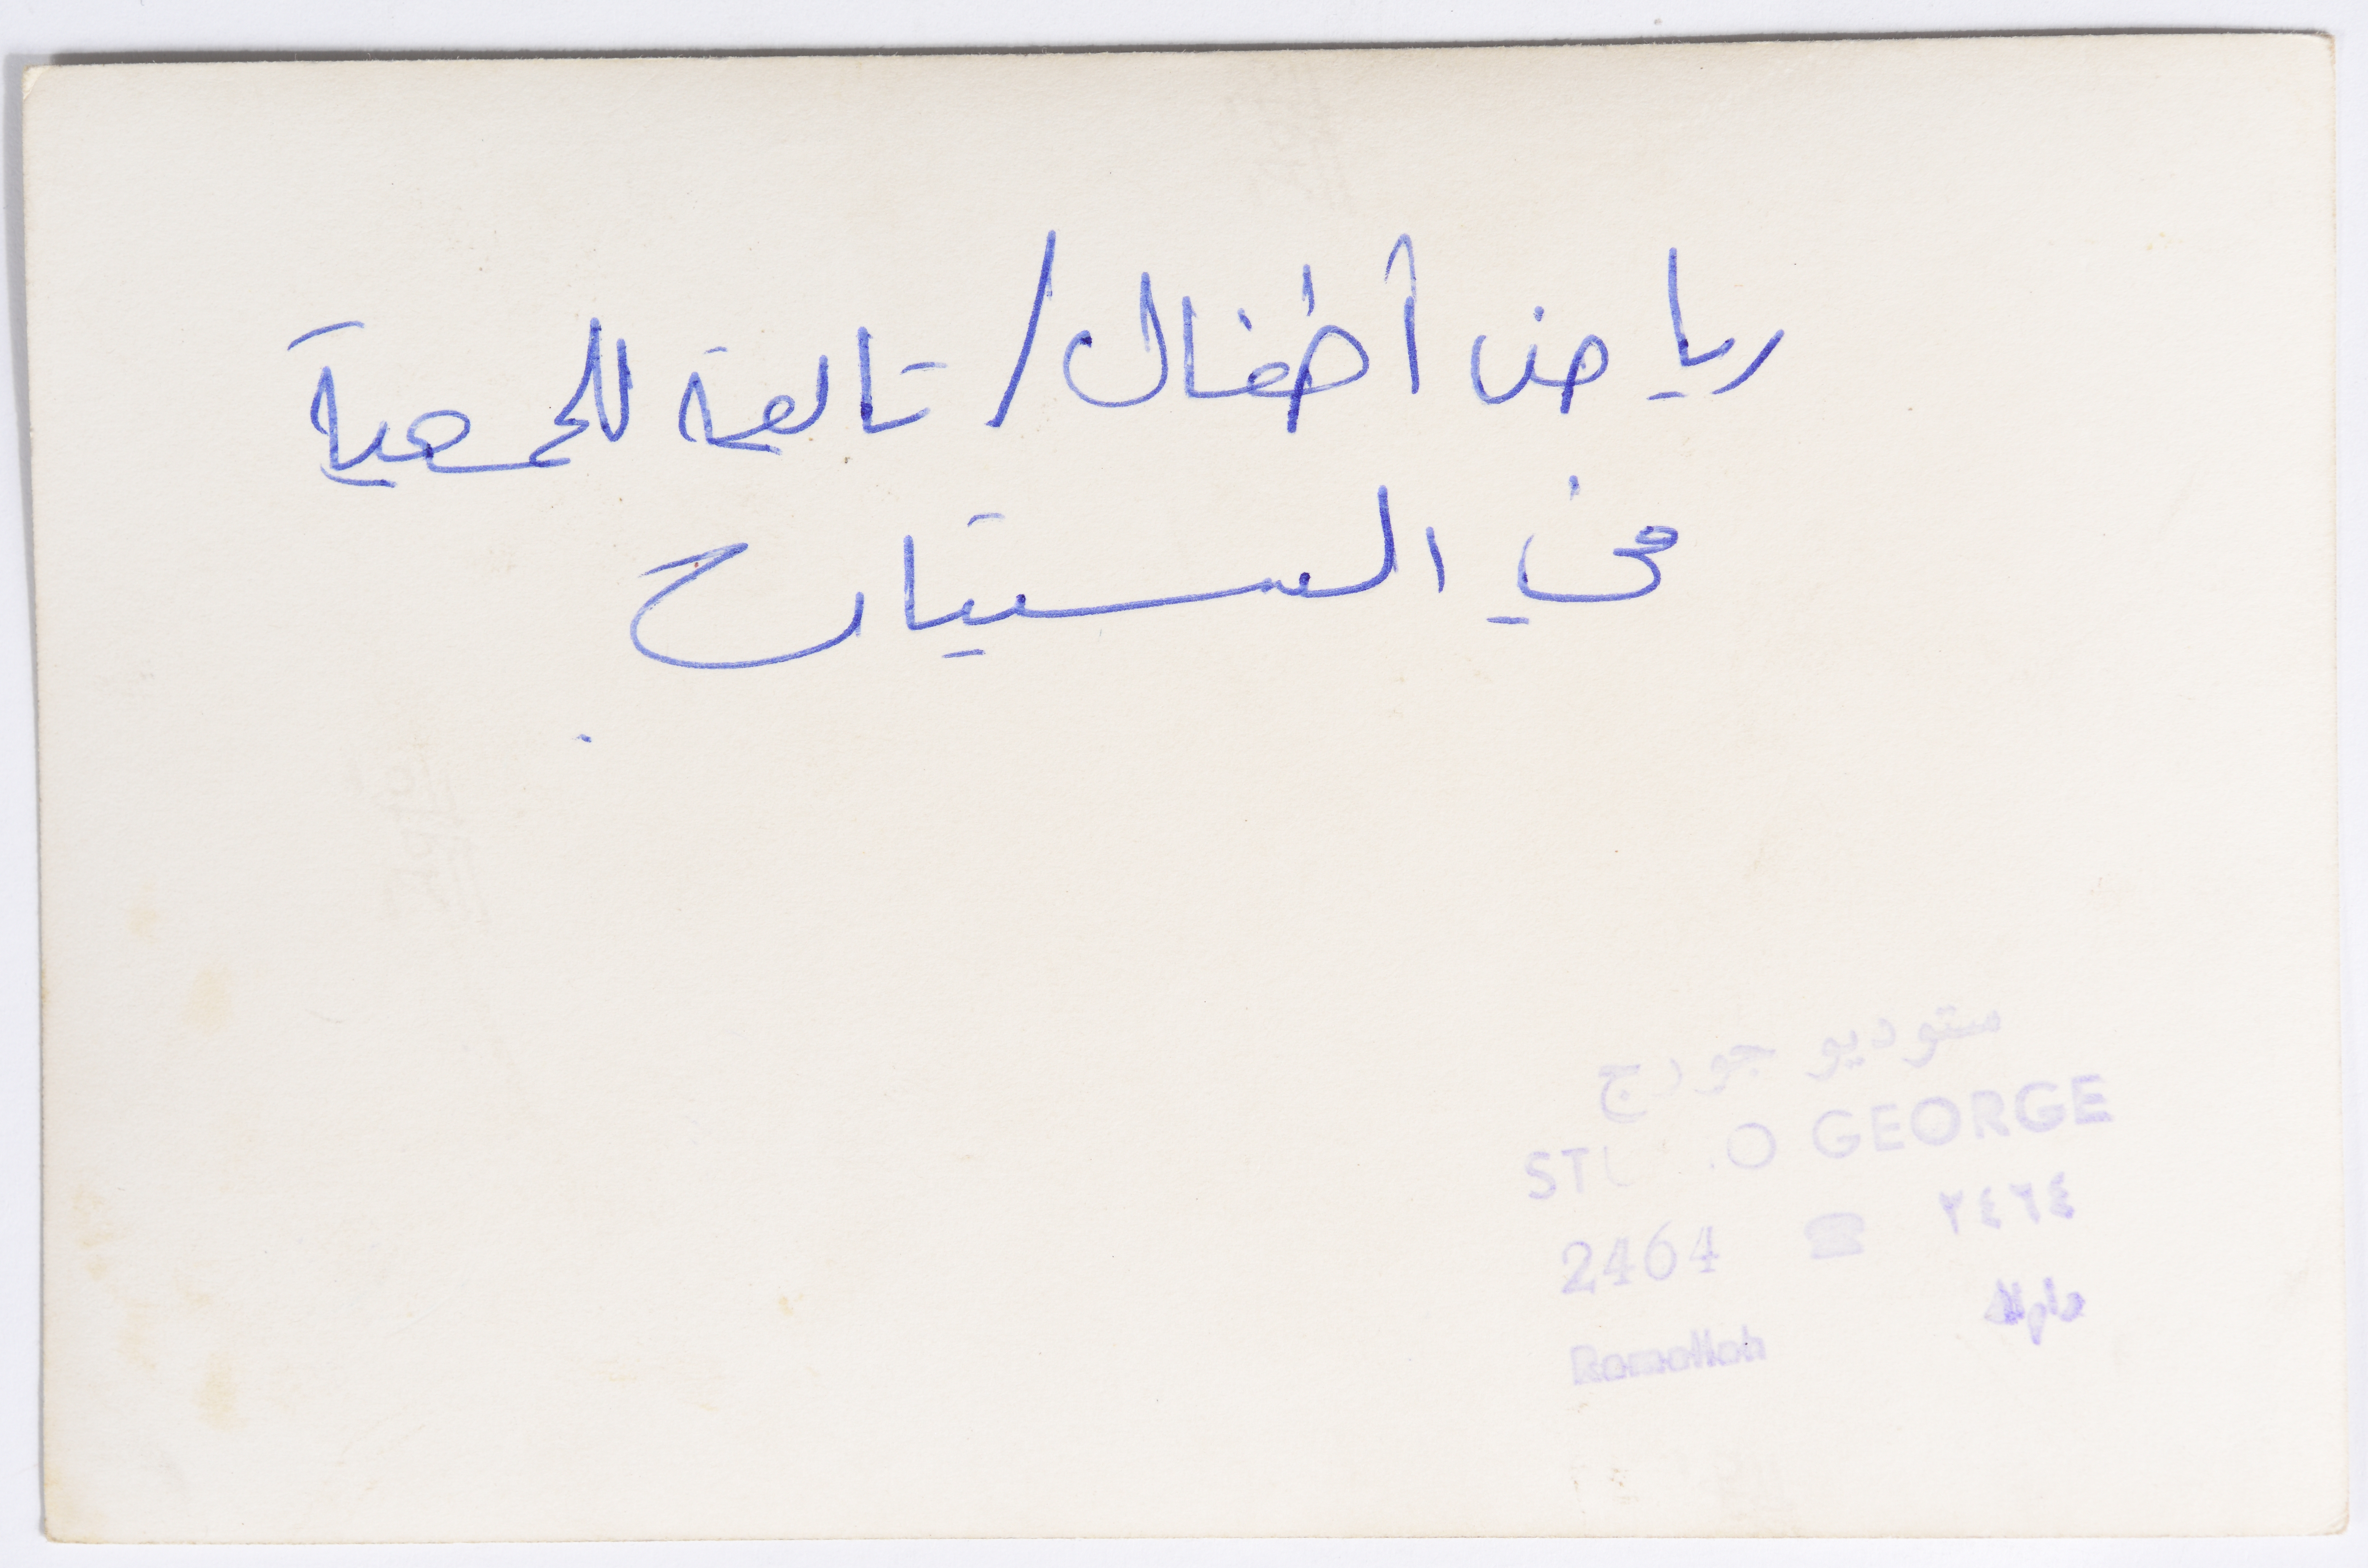 رياض أطفال / تابعة للجمعية
في
ستوديو جورج
STUDIO GEORGE
2464 ☎ ٢٤٦٤
Ramallah رام الله